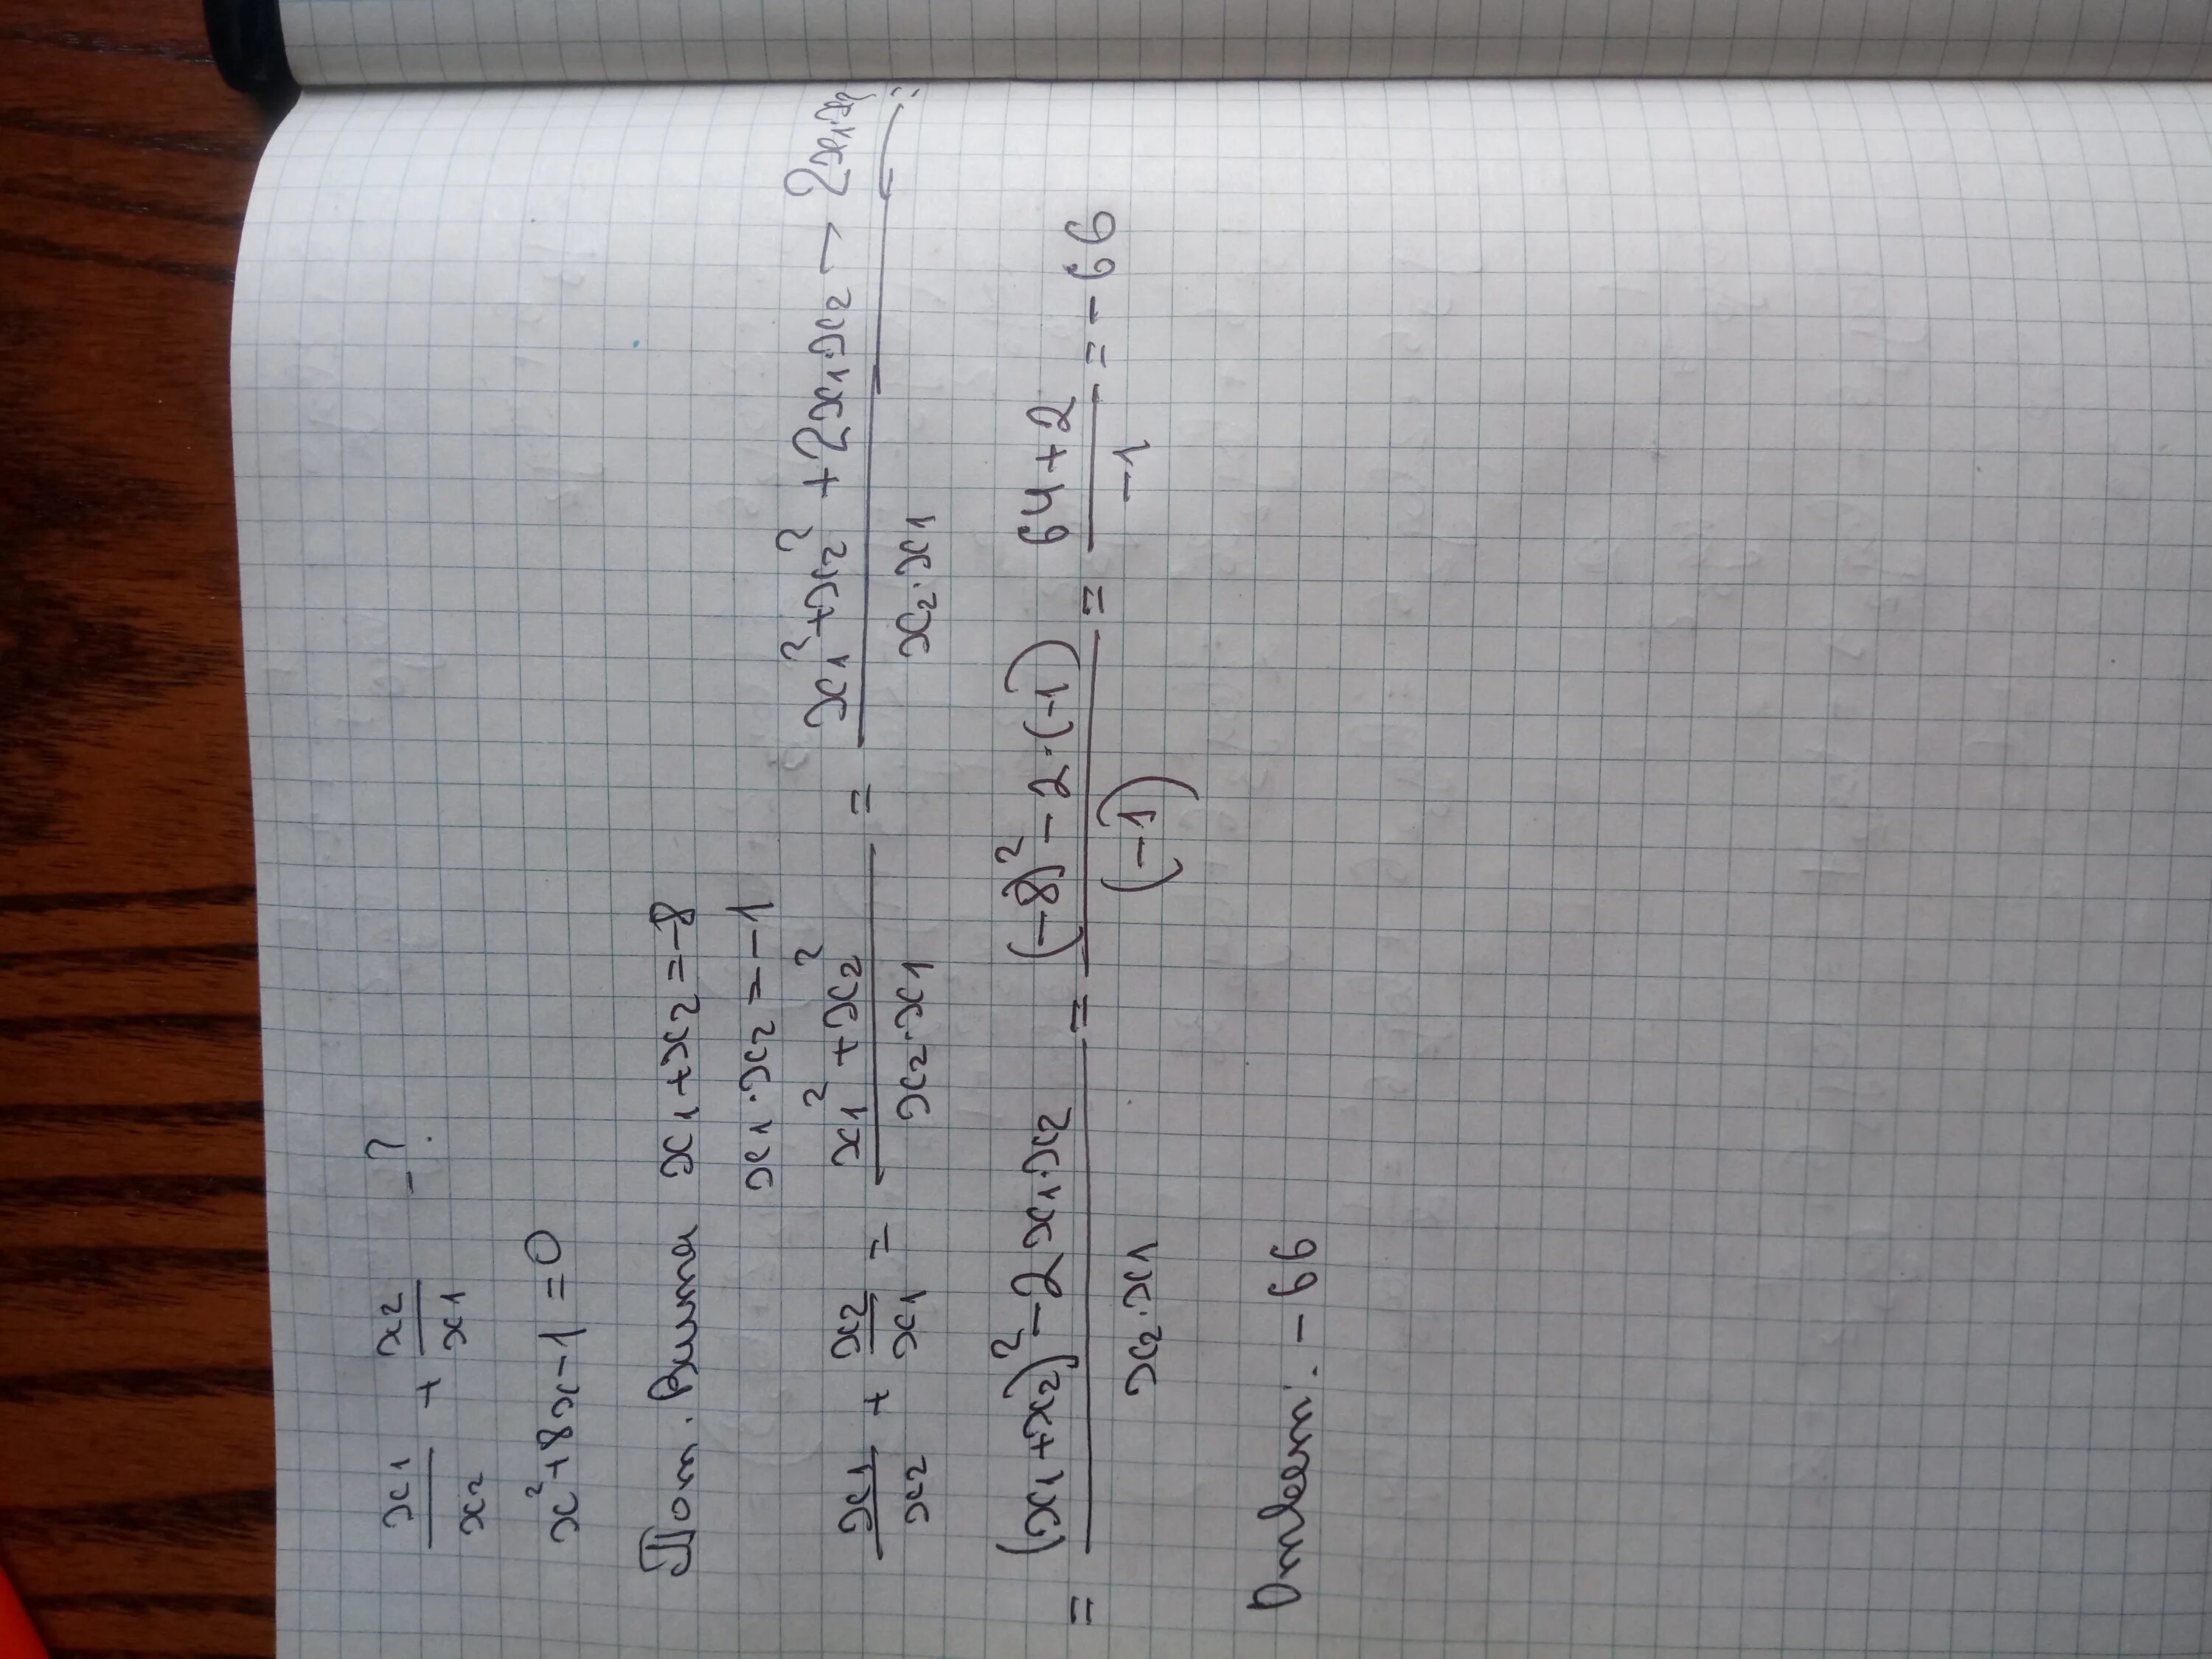 x1/x2 + x2/x1 - ?
x² + 8x - 1 = 0
По т. Виета x1 + x2 = -8
x1 · x2 = -1
x1/x2 + x2/x1 = (x1² + x2²)/(x2 · x1) = (x1² + x2² + 2x1 · x2 - 2x1 · x2)/(x2 · x1) =
= ((x1 + x2)² - 2x1 · x2)/(x2 · x1) = ((-8)² - 2 · (-1))/(-1) = (64 + 2)/(-1) = -66
Ответ: -66